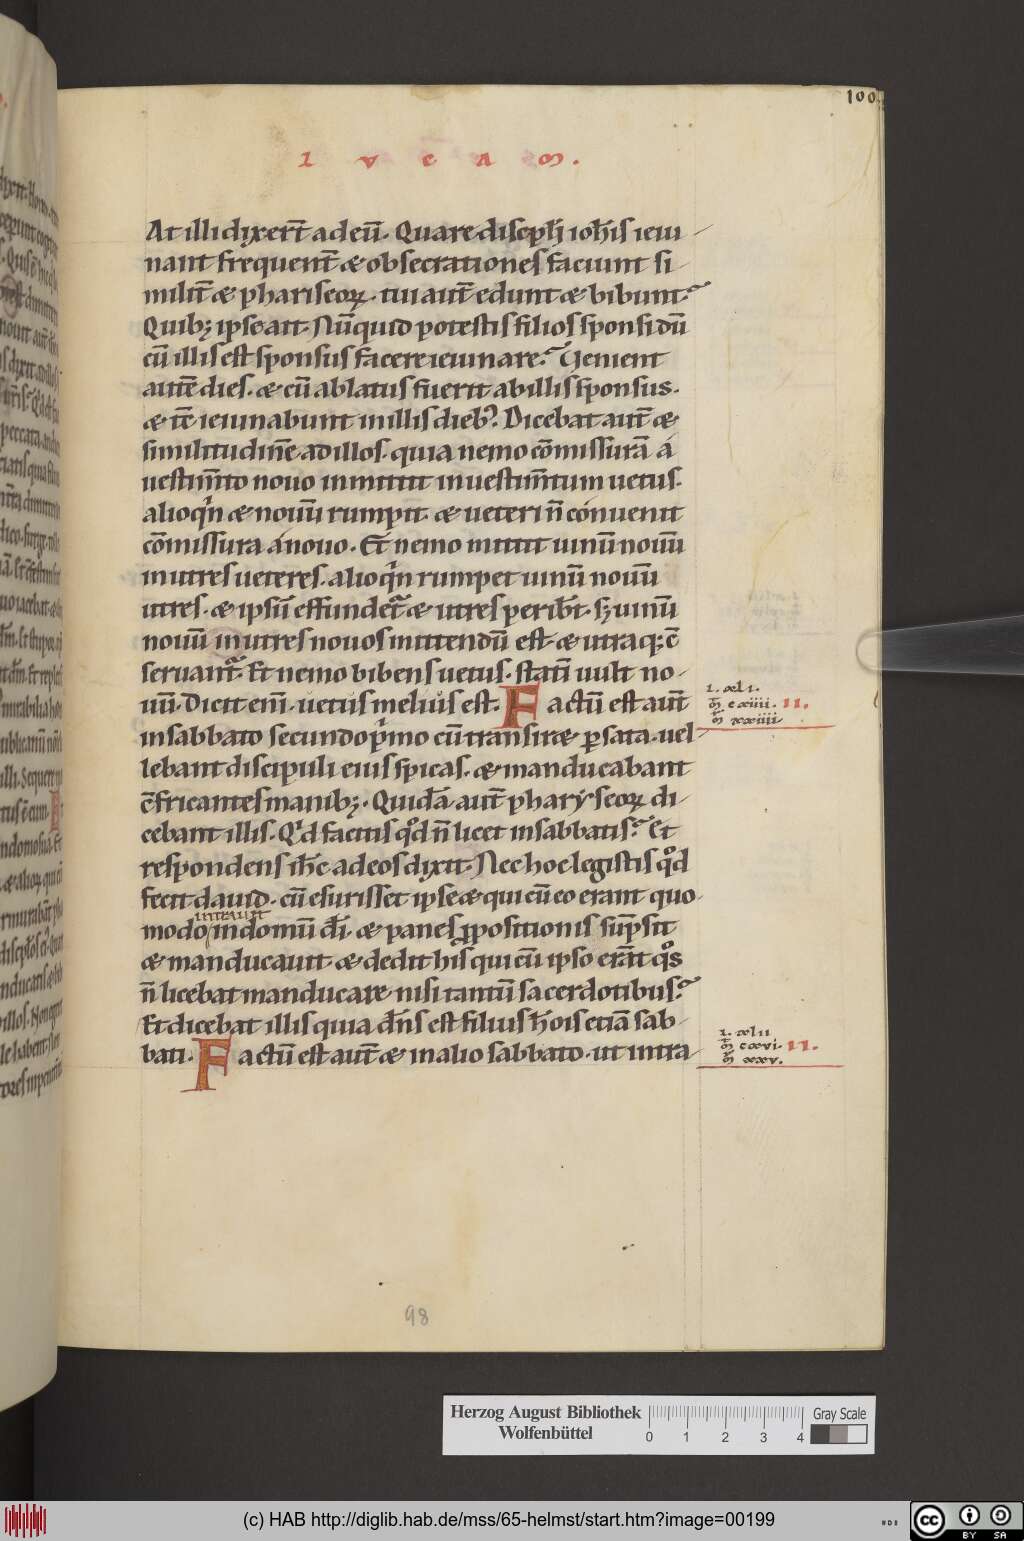 100
L V C A M.
At illi dixer̄t ad eū. Quare discipl̄i ioh̄is ieiu
nant frequent̄ & obsecrationes faciunt si
milit̄ & phariseoꝝ. tui aut̄ edunt & bibunt?
Quibꝫ ipse ait. Nūquid potestis filios sponsi dū
cū illis est sponsus facere ieiunare? Uenient
autē dies. & cū ablatus fuerit ab illis sponsus.
& tc̄ ieiunabunt in illis dieb᾽. Dicebat aut̄ &
similitudinē ad illos. quia nemo cōmissurā á
uestim̄to nouo inmittit in uestim̄tum uetus.
alioq̄n & nouū rumpit. & ueteri n̄ conuenit
cōmissura á nouo. Et nemo mittit uinū nouū
in utres ueteres. alioq̄n rumpet uinū nouū
utres. & ipsū effundet᷑ & utres peribt̄. sꝫ uinū
nouū in utres nouos mittendū est & utraqꝫ c̄
seruant᷑. Et nemo bibens uetus. statī uult no
uū. Dicit en̄i. uetus melius est. Factū est aut̄
in sabbato secundo p̄mo cū transir& ꝑ sata. uel
lebant discipuli eius spicas. & manducabant
c̄fricantes manibꝫ. Quidā aut̄ pharyseoꝝ di
cebant illis. Qͥd facitis qͦd n̄ licet in sabbatis? et
respondens ih̄c ad eos dixit. Nec hoc legistis qͦd
fecit dauid. cū esurisset ipse & qui cū eo erant quo
intrauit
modo in domū dī. & panes ꝓpositionis sūpsit
& manducauit & dedit his qui cū ipso erāt qͦs
n̄ licebat manducare nisi tantū sacerdotibus?
Et dicebat illis quia dn̄s est filius h̄ois etiā sab
bati. Factū est aut̄ & in alio sabbato. ut intra
l. xli.
m̄ cxiiii. II.
m̄ xxiiii.
l. xlii
m̄ cxvi. II.
m̄ xxv.
98
Herzog August Bibliothek
Wolfenbüttel
0 1 2 3 4
Gray Scale
(c) HAB http://diglib.hab.de/mss/65-helmst/start.htm?image=00199
cc BY SA